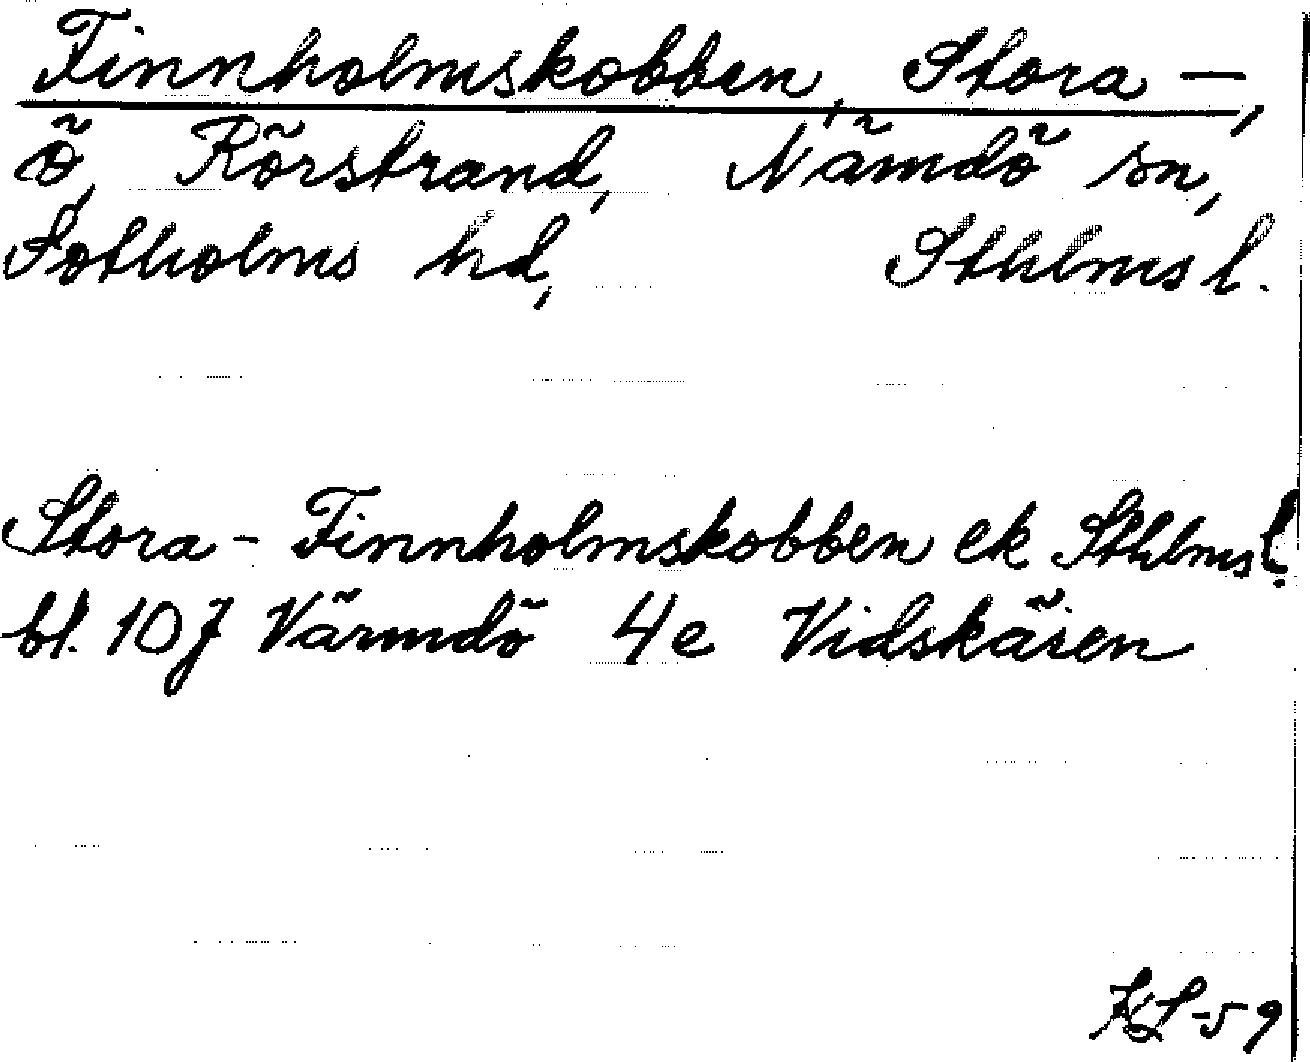 Finnholmskobben, Stora –,
ö, Rörstrand, Nämdö sn,
Sotholms hd, Sthlms l.
Stora - Finnholmskobben ek Sthlms l.
bl. 10J Värmdö 4e Vidskären
KL-59